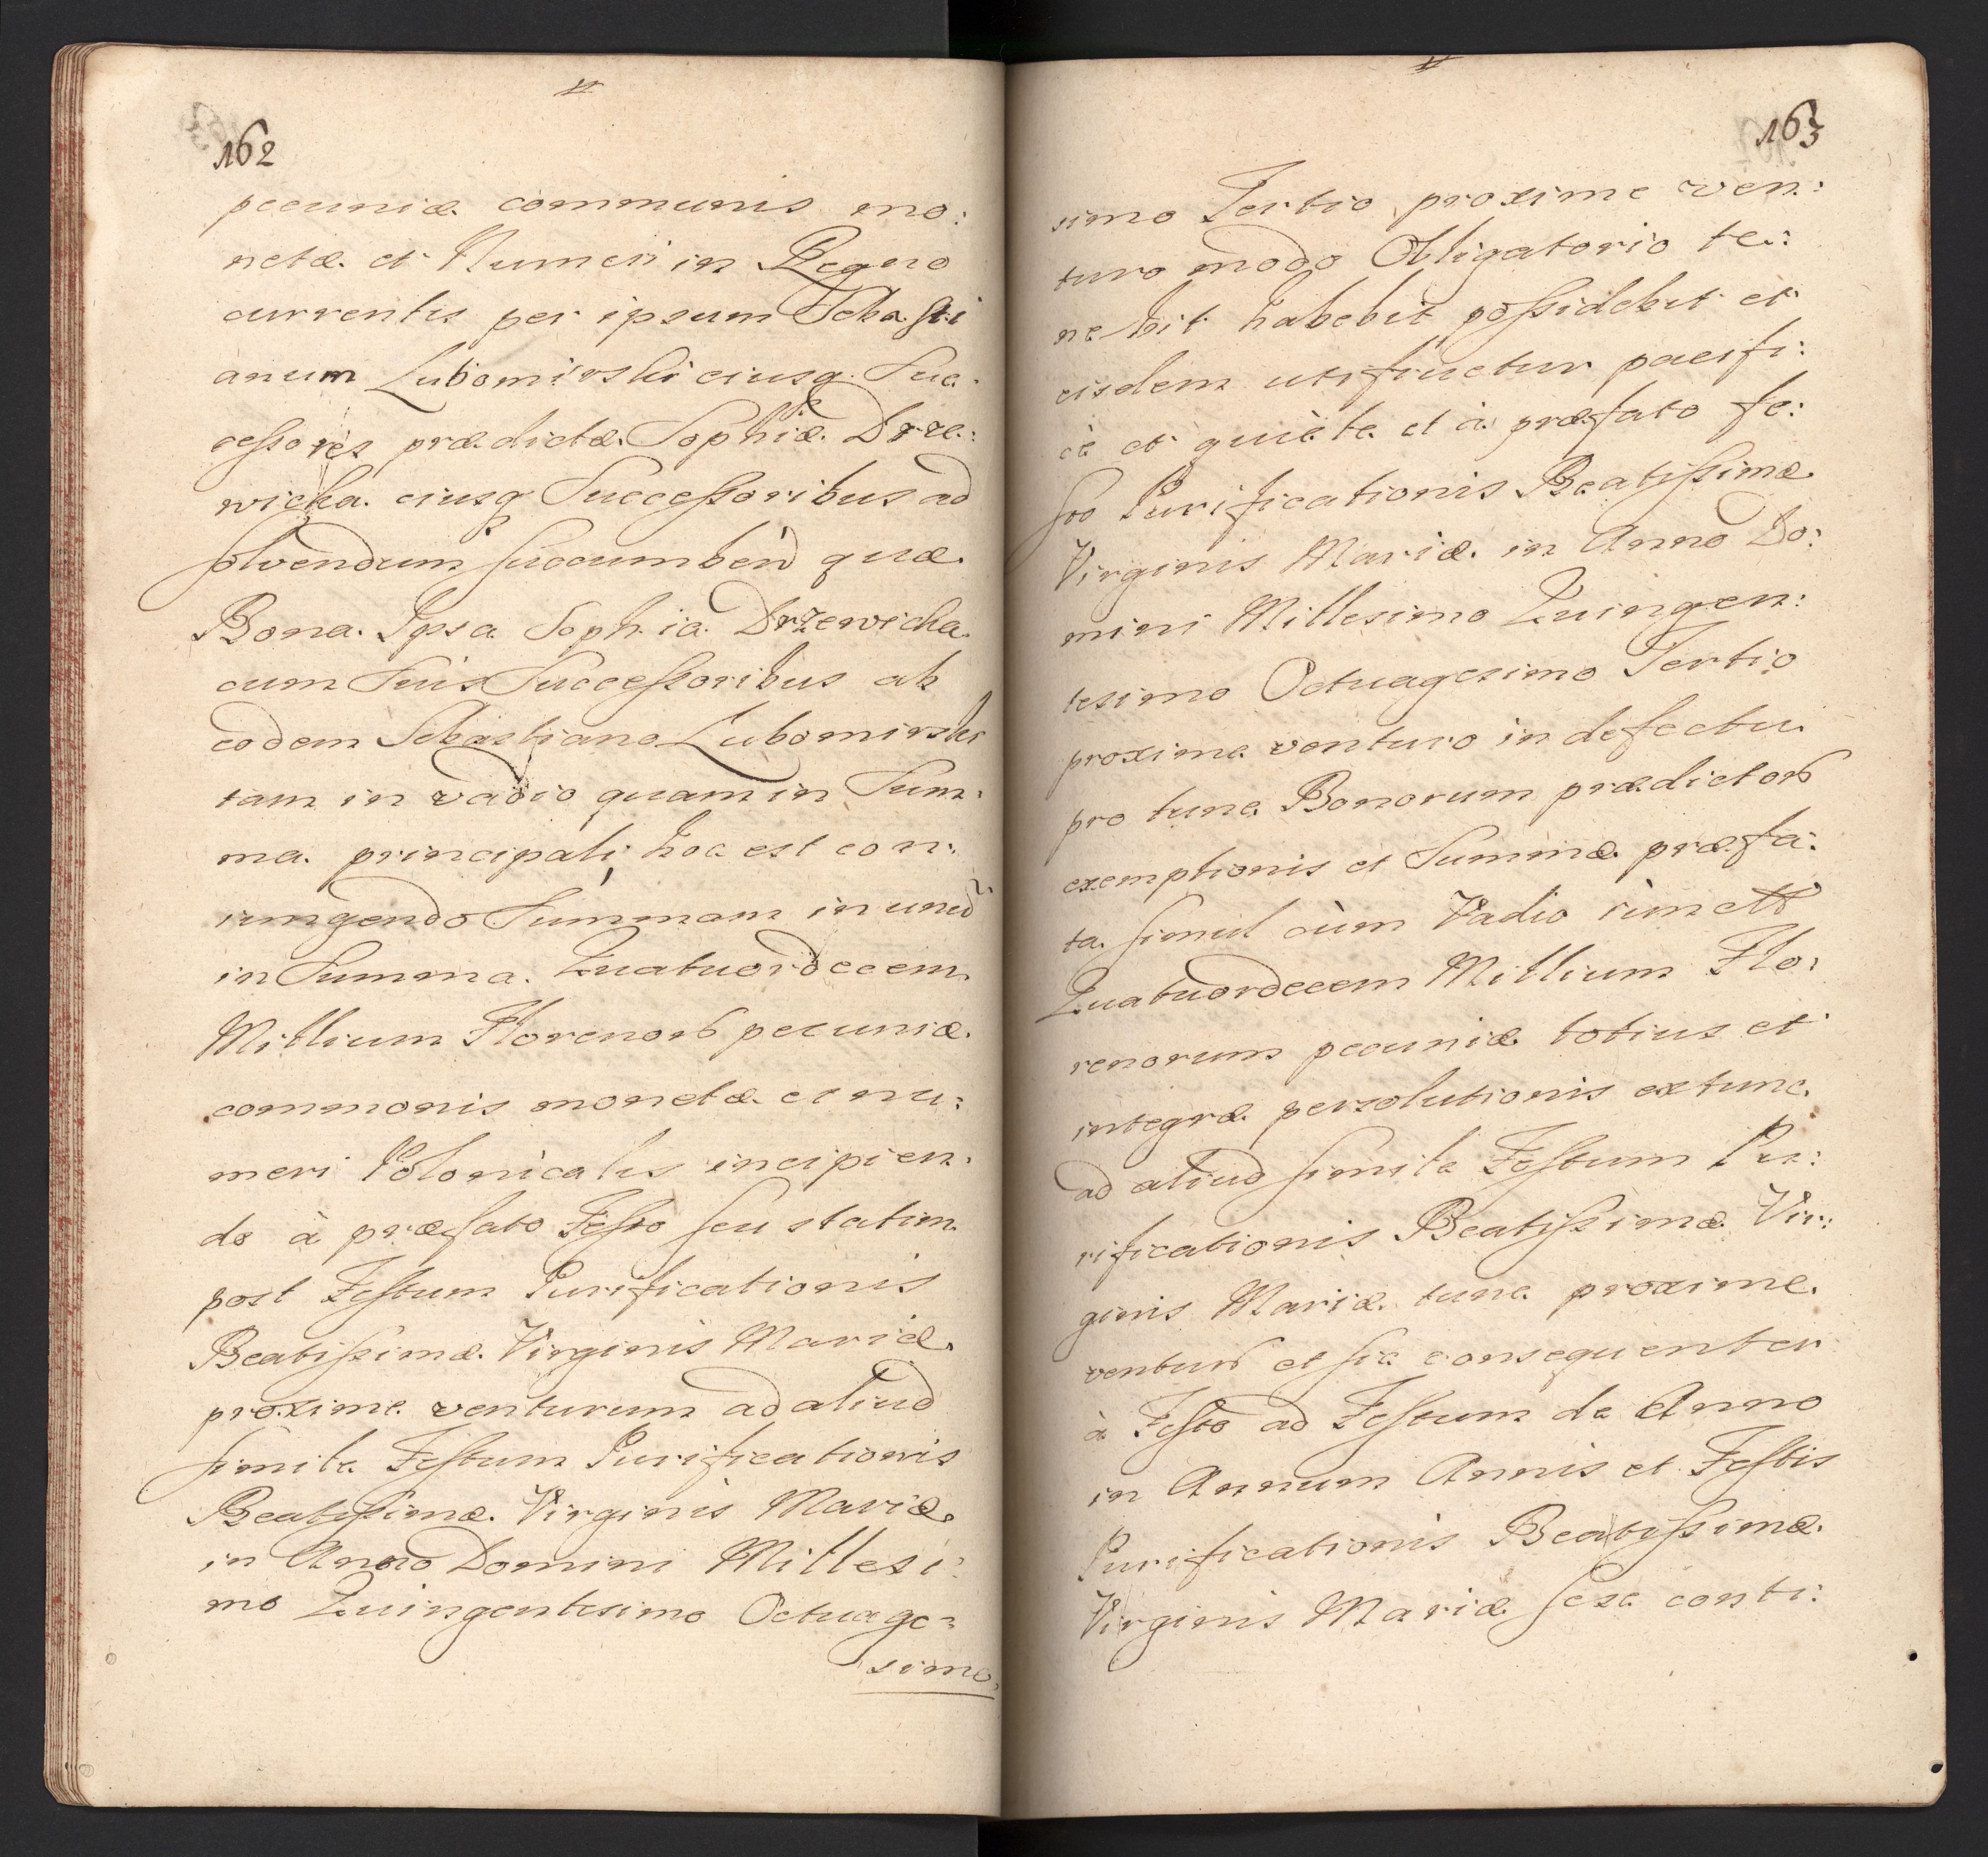 162
pecuniæ communis mo:
netæ et Numeri in Regno
currentis per ipsum Sebasti
anum Lubomirski eiusq. Suc.
cessores prædictæ Sophiæ Drze:
wicka eiusq Successoribus ad
solvendum succumbend quæ
Bona. Ipsa Sophia Drzewicka
cum Suis Successoribus ab
eodem Sebastiano Lubomirski
tam in vadio quam in Sum.
ma principali hoc est con:
iungendo Summam in unu͂
in Summa. Quatuordecem
Millium Florenorͫ pecuniæ
commonis monetæ et nu:
meri Polonicalis incipien.
do à præfato Festo seu statim
post Festum Purificationis
Beatissimæ Virginis Mariæ
proxime venturum ad aliud
simile Festum Purificationis
Beatissimæ Virginis Mariæ
in Anno Domini Millesi:
mo Quingentesimo Octuage=
simo.
163
simo Tertio proxime ven:
turo modo Obligatorio te:
nebit habebit possidebit et
eisdem utifruetur pacifi:
cè et quiète et à præfato fe:
sto Purificationis Beatissimæ
Virginis Mariæ in Anno Do:
mini Millesimo Quingen:
tesimo Octuagesimo Tertio
proxime venturo in defectu
pro tunc Bonorum prædictorͫ
exemptionis et Summæ præfa:
ta simul cùm Vadio
Quatuordecem Millium Flo:
renorum pecuniæ totius et
integræ persolutionis extunc
ad aliud simile Festum Pu:
rificationis Beatissimæ Vir:
ginis Mariæ tunc proxime
ventur et sic consequenter
à Festo ad Festum de Anno
in Annum Annis et Festis
Purificationis Beatissimæ
Virginis Mariæ sese conti: